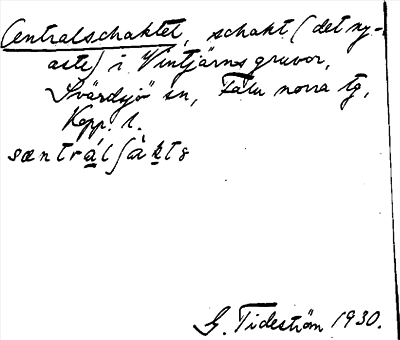 Centralschaktet, schakt (det ny-
aste) i Vintjärns gruvor,
Svärdsjö sn, Falu norra tg,
Kopp. l.
sæntrálʃàkts
G. Tideström 1930.